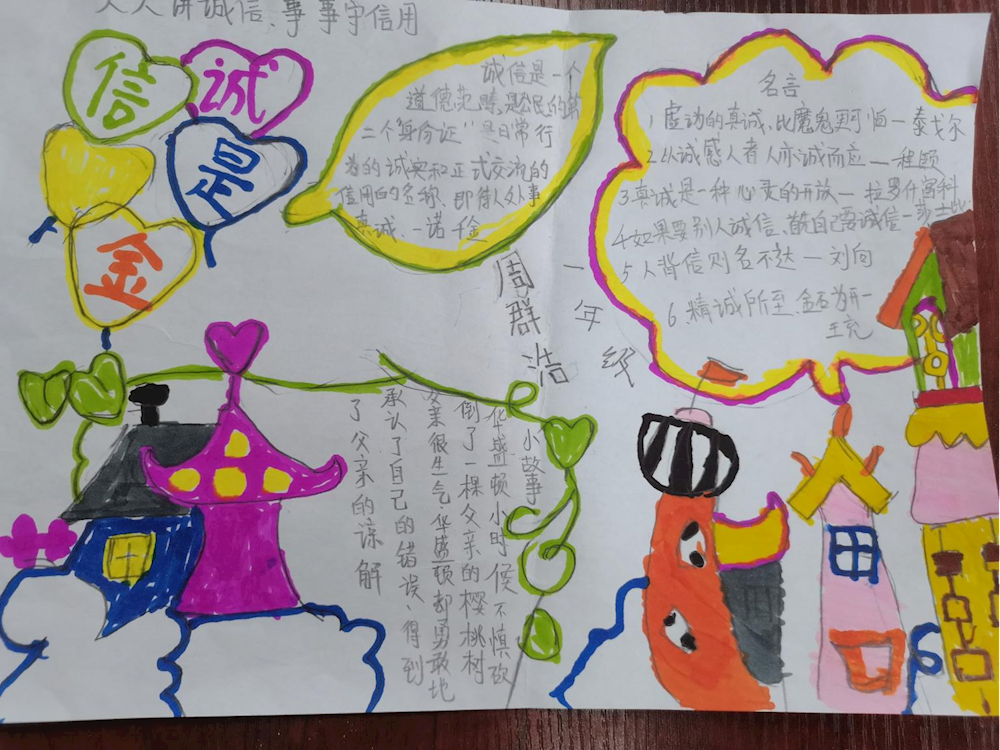 人人讲诚信、事事守信用
诚信是金
诚信是一个
道德范畴,是公民的第
二个"身份证"是日常行
为的诚实和正式交流的
信用的名称、即待人处事
真诚、一诺千金
名言
1 虚动的真诚、比魔鬼更可怕一泰戈尔
2.以诚感人者人亦诚而应一程颐
3.真诚是一种心灵的开放一拉罗什富科
4如果要别人诚信、首先自己要诚信一莎士比
5人背信则名不达一刘向
6.精诚所至.金石为开一
王充
一年级
周群浩
小故事
华盛顿小时候不慎砍
倒了一棵父亲的樱桃树
父亲很生气.华盛顿却勇敢地
承认了自己的错误、得到
了父亲的谅解